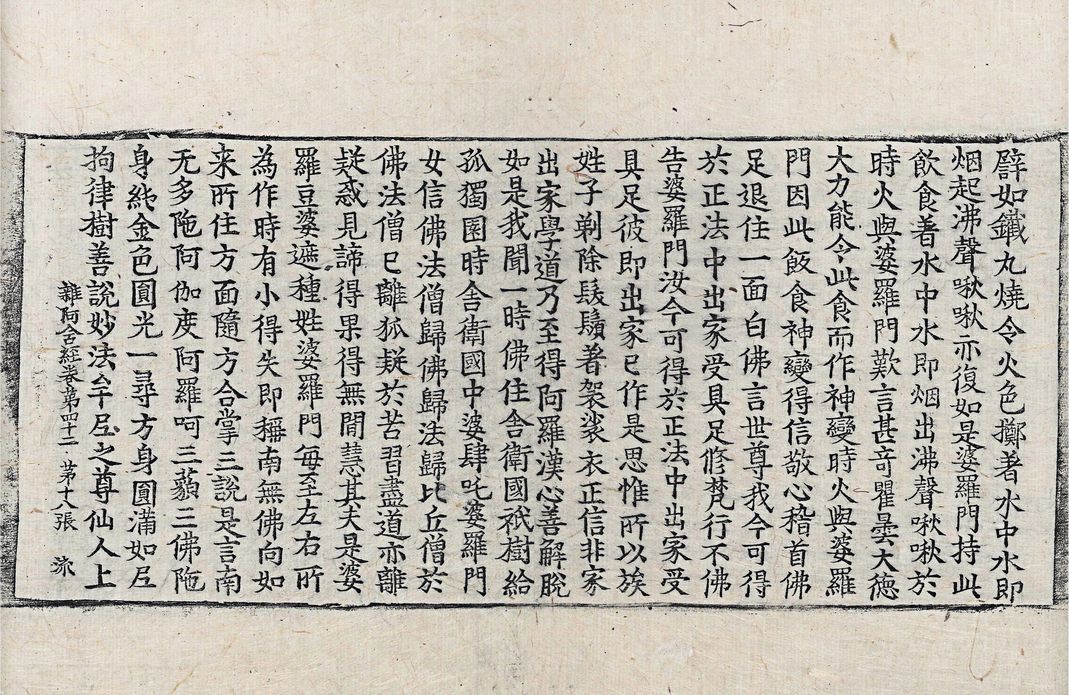 譬如鐵丸燒令火色擲著水中水即
烟起沸聲啾啾亦復如是婆羅門持此
飲食著水中水即烟出沸聲啾啾於
時火與婆羅門歎言甚奇瞿曇大德
大力能令此食而作神變時火與婆羅
門因此飯食神變得信敬心稽首佛
足退住一面白佛言世尊我今可得
於正法中出家受具足修梵行不佛
告婆羅門汝今可得於正法中出家受
具足彼即出家已作是思惟所以族
姓子剃除鬚鬚著袈裟衣正信非家
出家學道乃至得阿羅漢心善解脫
如是我聞一時佛住舍衛國祇樹給
孤獨園時舍衛國中婆肆吒婆羅門
女信佛法僧歸佛歸法歸比丘僧於
佛法僧已離狐疑於苦習盡道亦離
疑惑見諦得果得無間慧其夫是婆
羅豆婆遮種姓婆羅門每至左右所
為作時有小得失即稱南無佛向如
来所住方面隨方合掌三說是言南
无多陁阿伽度阿羅呵三藐三佛陁
身純金色圓光一尋方身圓滿如尼
拘律樹善說妙法牟尼之尊仙人上
雜阿含經卷第四十二 第十八張 流